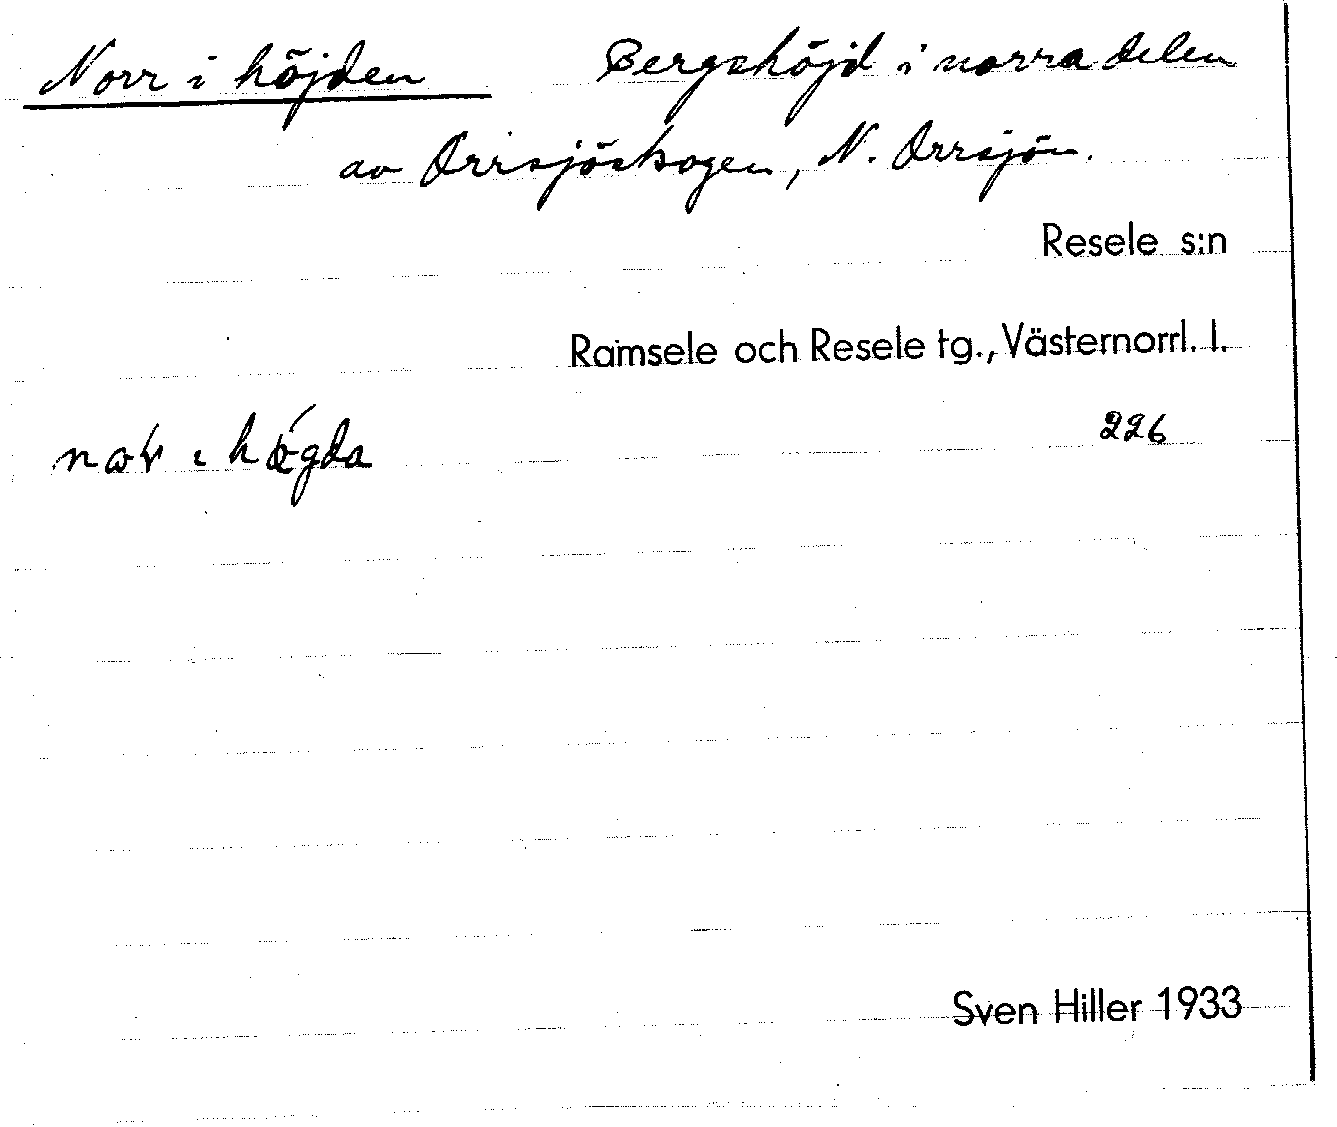 Norr i höjden Bergshöjd i norra delen
av Orrsjöskogen, N. Orrsjön.
Resele s:n
Ramsele och Resele tg., Västernorrl. l.
226
Sven Hiller 1933